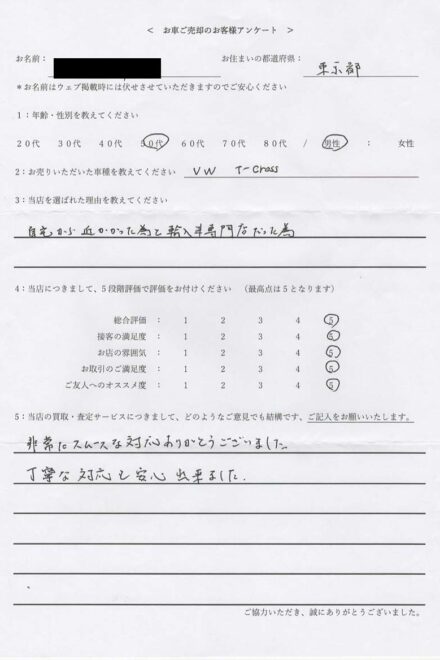 < お車ご売却のお客様アンケート >
お名前： お住まいの都道府県： 東京都
＊お名前はウェブ掲載時には伏せさせていただきますのでご安心ください
１：年齢・性別を教えてください
２０代 ３０代 ４０代 ５０代 ６０代 ７０代 ８０代 / 男性 ： 女性
２：お売りいただいた車種を教えてください VW T-Cross
３：当店を選ばれた理由を教えてください
自宅から近かかった為と輸入車専門店だった為
４：当店につきまして、５段階評価で評価をお付けください （最高点は５となります）
総合評価： 1 2 3 4 5
接客の満足度： 1 2 3 4 5
お店の雰囲気： 1 2 3 4 5
お取引のご満足度： 1 2 3 4 5
ご友人へのオススメ度： 1 2 3 4 5
５：当店の買取・査定サービスにつきまして、どのようなご意見でも結構です、ご記入をお願いいたします。
非常にスムースな対応ありがとうございました。
丁寧な対応も安心出来ました.
ご協力いただき、誠にありがとうございました。